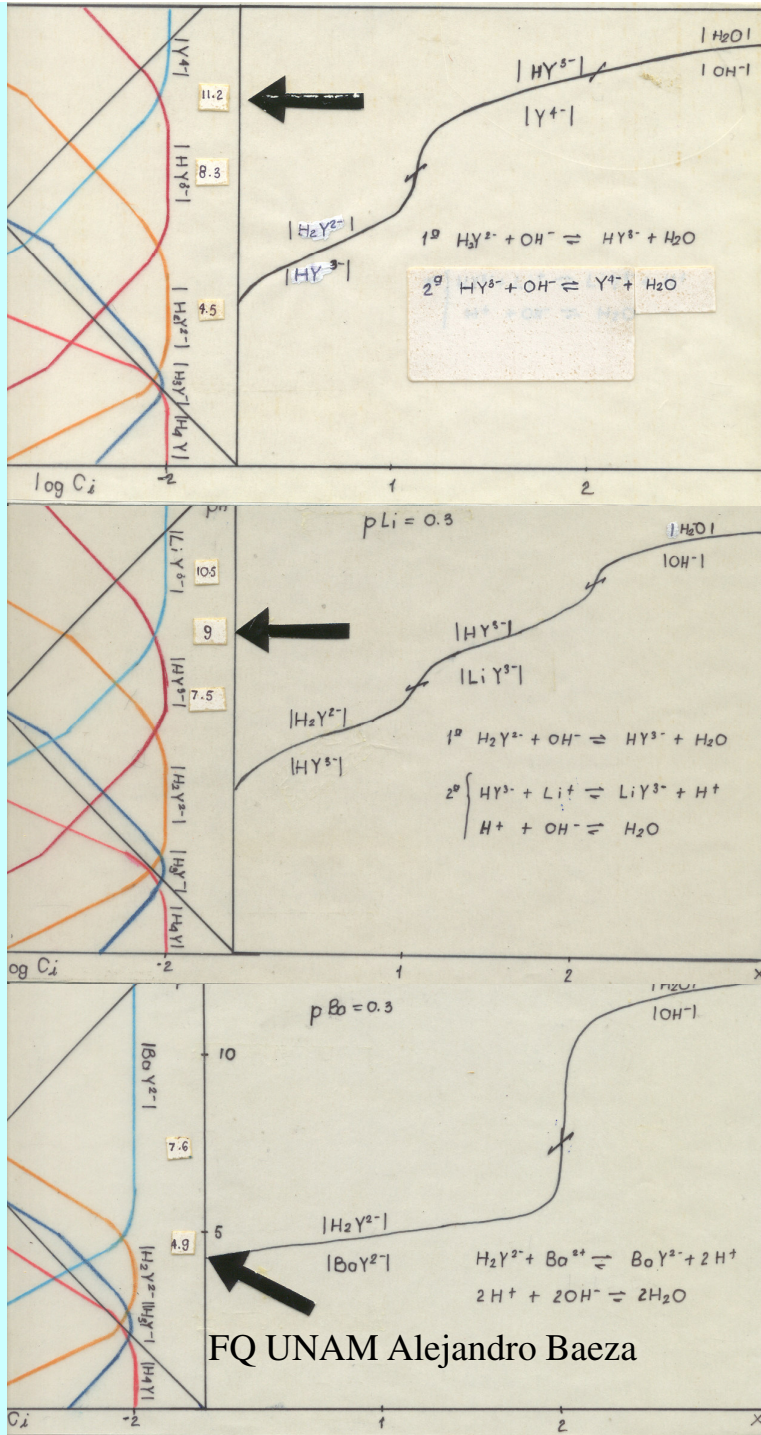 |Y4-|
11.2
|HY3-|
8.3
|H2Y2-|
4.5
|H3Y-|
|H4Y|
log Ci
-2
1
2
|H2O|
|OH-|
|HY3-|
|Y4-|
|H2Y2-|
|HY3-|
1º H2Y2- + OH- ⇌ HY3- + H2O
2º HY3- + OH- ⇌ Y4- + H2O
pLi = 0.3
|LiY3-|
10.5
9
|HY3-|
7.5
|H2Y2-|
|H3Y-|
|H4Y|
og Ci
-2
1
2
X
|H2O|
|OH-|
|HY3-|
|LiY3-|
|H2Y2-|
|HY3-|
1º H2Y2- + OH- ⇌ HY3- + H2O
2º { HY3- + Li+ ⇌ LiY3- + H+
H+ + OH- ⇌ H2O
pBa = 0.3
|BaY2-|
10
7.6
5
4.9
|H2Y2-|
|H3Y-|
|H4Y|
Ci
-2
1
2
X
|H2O|
|OH-|
|H2Y2-|
|BaY2-|
H2Y2- + Ba2+ ⇌ BaY2- + 2H+
2H+ + 2OH- ⇌ 2H2O
FQ UNAM Alejandro Baeza